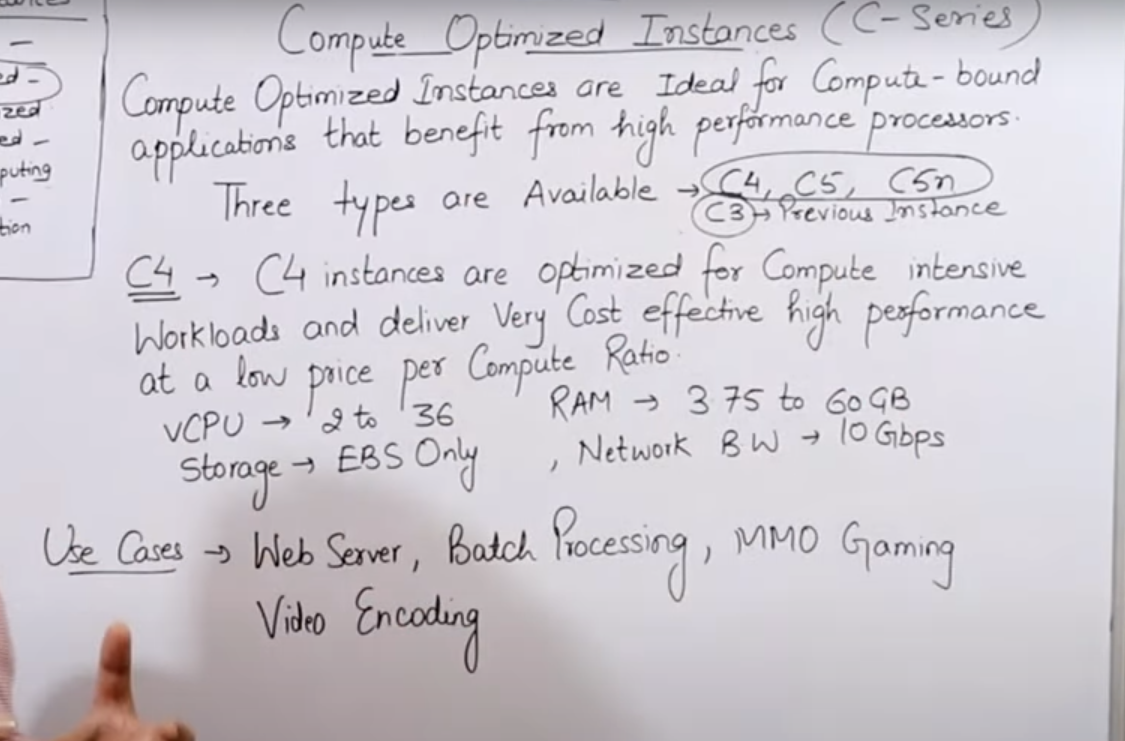 Compute Optimized Instances (C-Series)
Compute Optimized Instances are Ideal for Compute-bound
applications that benefit from high performance processors.
Three types are Available → C4, C5, C5n
C3 → Previous Instance
C4 → C4 instances are optimized for Compute intensive
Workloads and deliver Very Cost effective high performance
at a low price per Compute Ratio.
vCPU → 2 to 36 RAM → 3.75 to 60 GB
Storage → EBS Only , Network BW → 10 Gbps
Use Cases → Web Server, Batch Processing, MMO Gaming
Video Encoding